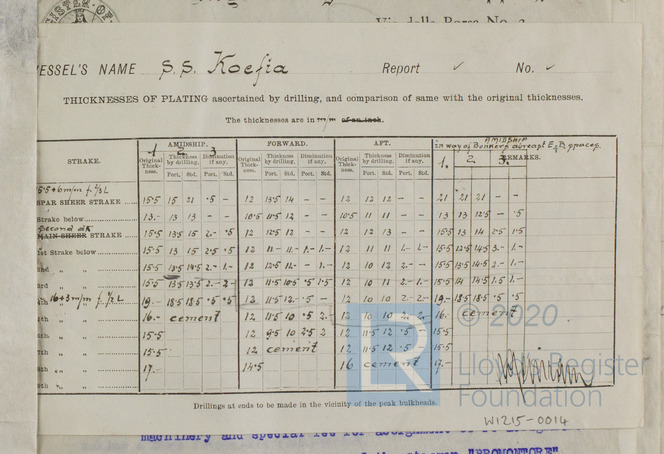 Via della Borsa No. 2
VESSEL'S NAME S.S. Koefia Report ✓ No. ✓
THICKNESSES OF PLATING ascertained by drilling, and comparison of same with the original thicknesses.
The thicknesses are in m/m of an inch.
AMIDSHIP. FORWARD. AFT. AMIDSHIP
in way of Bunkers
STRAKE. REMARKS.
1 2 3 1. 2 3.
Original Thickness. Thickness by drilling. Diminution if any. Original Thickness. Thickness by drilling. Diminution if any. Original Thickness. Thickness by drilling. Diminution if any.
Port. Std. Port. Std. Port. Std. Port. Std. Port. Std. Port. Std.
SPAR SHEER STRAKE 15·5 15 21 ·5 – 12 13·5 14 – – 12 12 12 – – 21 21 21 – –
Strake below 13·- 13 13 – – 10·5 10·5 12 – – 10·5 11 11 – – 13 13 12·5 – ·5
Second dk
MAIN SHEER STRAKE 15·5 13·5 15 2·- ·5 12 12·5 12 – – 12 12 13 – – 15·5 13 14 2·5 1·5
1st Strake below 15·5 13 15 2·5 ·5 12 11·- 11·- 1·- 1·- 12 11 11 1·- 1·- 15·5 12·5 14·5 3·- 1·-
2nd " " 15·5 13·5 14·5 2·- 1·- 12 12·5 11·- – 1·- 12 10 12 2·- – 15·5 13·5 14·5 2·- 1·-
3rd " " 15·5 13·5 13·5 2·- 2·- 12 11·5 10·5 ·5 1·5 12 10 11 2·- 1·- 15·5 14 14 1·5 1·-
4th 16+3 m/m f. ½ L 19·- 18·5 18·5 ·5 ·5 12 11·5 12·- ·5 – 12 10 10 2·- 2·- 19·- 18·5 18·5 ·5 ·5
" " 16·- cement 12 11·5 10 ·5 2·- 12 10 10 2·- 2·- 16·- cement
" " 15·5 12 9·5 10 2·5 2 12 11·5 12 ·5 – 15·5
7th " " 15·5 12 cement 12 11·5 12 ·5 – 15·5
8th " " 17·- 14·5 16 cement 17·-
9th " "
Drillings at ends to be made in the vicinity of the peak bulkheads.
© 2020
LR
Lloyd's Register
Foundation
W1215-0014
machinery and special fee for
of the steamer "PROMONTORE"